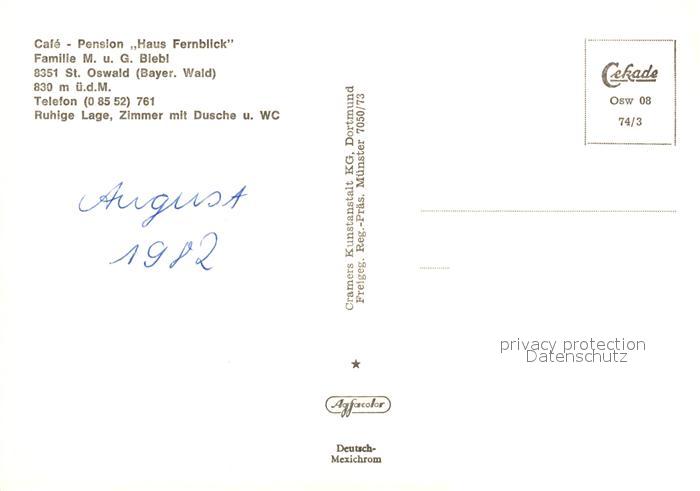 Café - Pension „Haus Fernblick"
Familie M. u. G. Biebl
8351 St. Oswald (Bayer. Wald)
830 m ü.d.M.
Telefon (0 85 52) 761
Ruhige Lage, Zimmer mit Dusche u. WC
August
1982
Cramers Kunstanstalt KG, Dortmund
Freigeg. Reg.-Präs. Münster 7050/73
Agfacolor
Deutsch-
Mexichrom
Cekade
Osw 08
74/3
privacy protection
Datenschutz